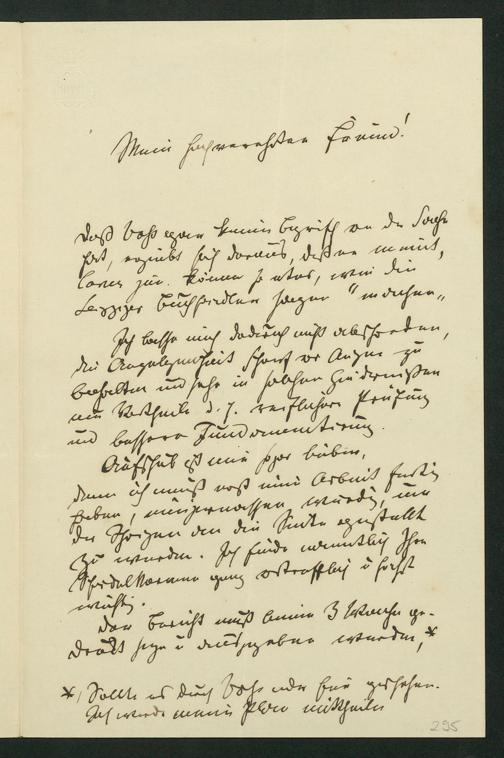 Mein hochverehrter Freund!
Daß Voß gar keinen Begriff von der Sache
hat, ergiebt sich daraus, daß er meint,
können so etwas, wie die
Leipziger Buchhändler sagen "machen"
Ich lasse mich dadurch nicht abschrecken,
die Angelegenheit scharf vor Augen zu
behalten und sehe in solchen Hindernissen
nur Vortheile d. h. reiflichere Prüfung
und bessere Fundamentirung.
Aufschub ist mir sogar
denn ich muß erst eine Arbeit fertig
haben, einigermassen würdig, um
der Ihrigen an die Seite gestellt
zu werden. Ich finde namentlich Ihre
ganz vortrefflich u höchst
wichtig.
Der Bericht muß binnen 3 Woche ge-
druckt sein u ausgegeben werden,*
*) Sollte es durch Voß oder hier geschehen.
Ich werde meinen Plan mittheilen
295